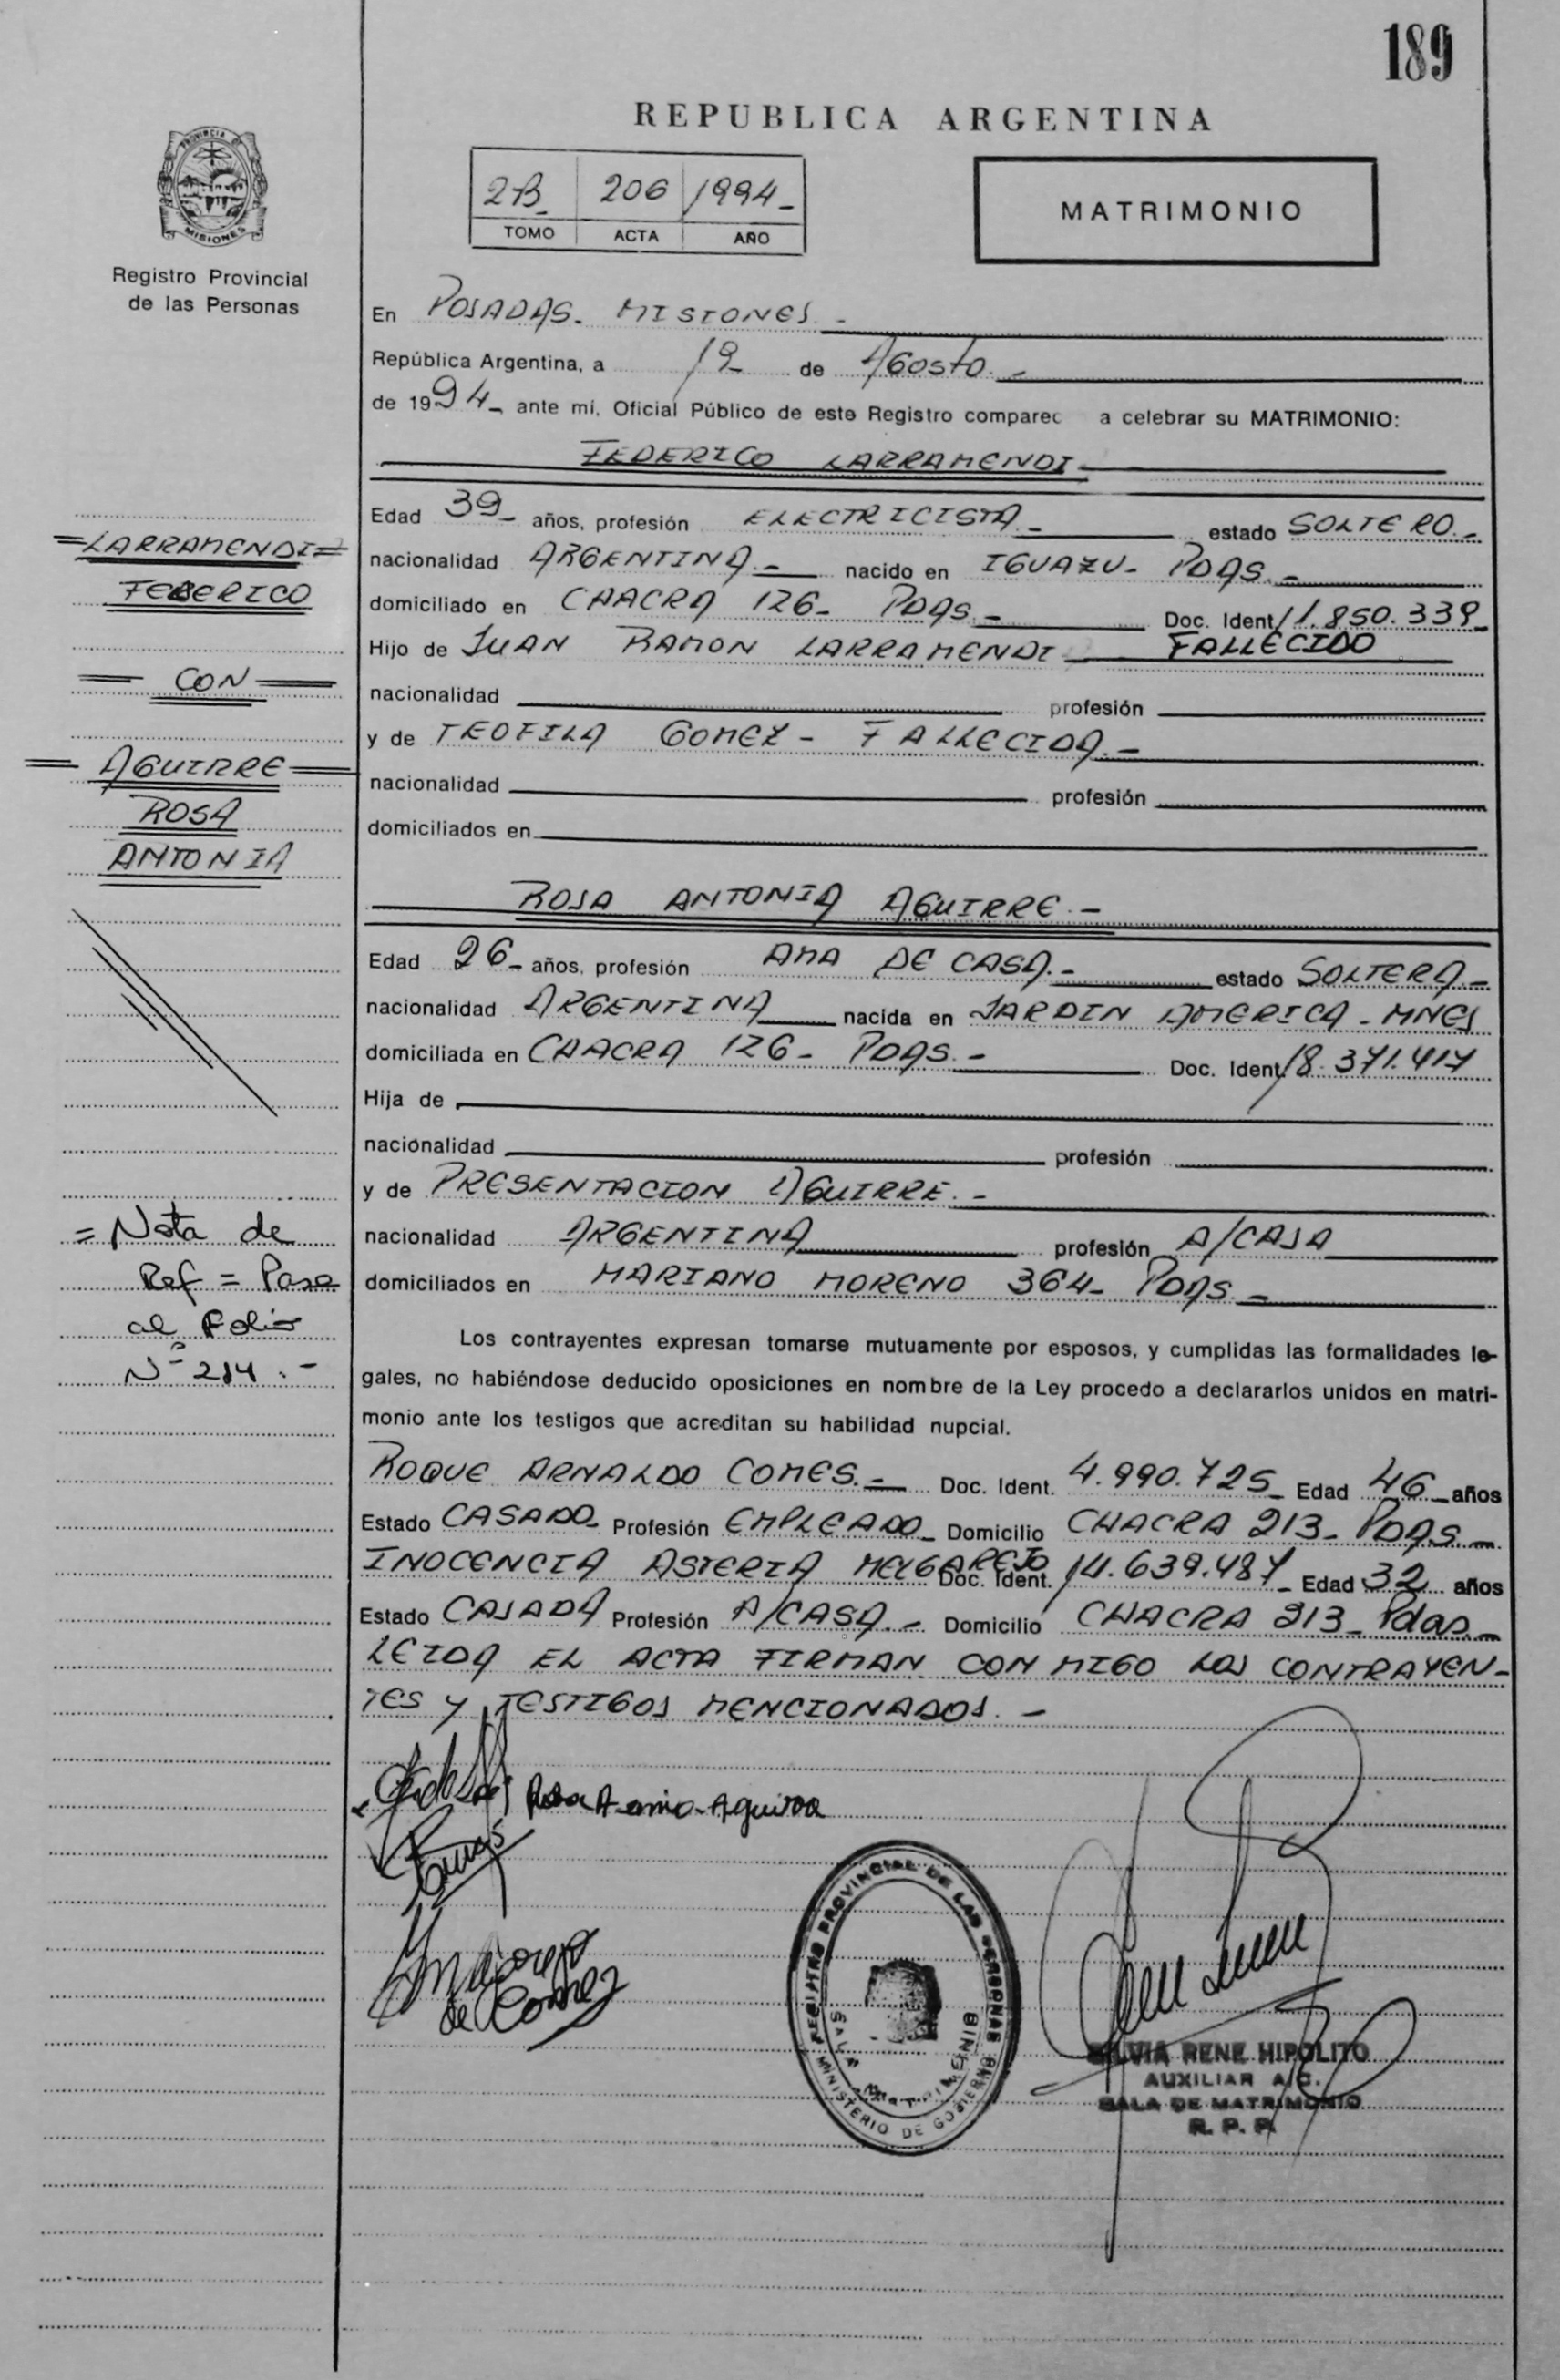 189
REPUBLICA ARGENTINA
2B_ 206 1994_
TOMO ACTA AÑO
MATRIMONIO
PROVINCIA DE
MISIONES
Registro Provincial
de las Personas
En POSADAS. MISIONES -
República Argentina, a 19 de Agosto. -
de 1994_ ante mí, Oficial Público de este Registro comparec a celebrar su MATRIMONIO:
FEDERICO LARRAMENDI
Edad 39_ años, profesión ELECTRICISTA._ estado SOLTERO._
nacionalidad ARGENTINA._ nacido en IGUAZU- PDAS._
domiciliado en CHACRA 126_ PDAS._ Doc. Ident 11.850.339_
Hijo de JUAN RAMON LARRAMENDI FALLECIDO
nacionalidad profesión
y de TEOFILA GOMEZ - FALLECIDA._
nacionalidad profesión
domiciliados en
ROSA ANTONIA AGUIRRE.-
Edad 26_ años, profesión AMA DE CASA._ estado SOLTERA._
nacionalidad ARGENTINA nacida en JARDIN AMERICA - MNES
domiciliada en CHACRA 126_ PDAS._ Doc. Ident. 18.371.417
Hija de
nacionalidad profesión
y de PRESENTACION AGUIRRE._
nacionalidad ARGENTINA profesión A/CASA
domiciliados en MARIANO MORENO 364_ PDAS._
Los contrayentes expresan tomarse mutuamente por esposos, y cumplidas las formalidades le-
gales, no habiéndose deducido oposiciones en nombre de la Ley procedo a declararlos unidos en matri-
monio ante los testigos que acreditan su habilidad nupcial.
ROQUE ARNALDO COMES._ Doc. Ident. 4.990.725_ Edad 46_ años
Estado CASADO_ Profesión EMPLEADO_ Domicilio CHACRA 213_ PDAS._
INOCENCIA ASTERIA MELGAREJO Doc. Ident. 14.639.487_ Edad 32 años
Estado CASADA Profesión A/CASA._ Domicilio CHACRA 213_ Pdas._
LEIDA EL ACTA FIRMAN CONMIGO LOS CONTRAYEN-
TES Y TESTIGOS MENCIONADOS._
=LARRAMENDI=
FEDERICO
= CON =
= AGUIRRE =
ROSA
ANTONIA
= Nota de
Ref = Pase
al Folio
Nº 214.-
Rosa Antonia Aguirre
de Comez
REGISTRO PROVINCIAL DE LAS PERSONAS
MINISTERIO DE GOBIERNO
SALA MATRIMONIO
SILVIA RENE HIPOLITO
AUXILIAR A/C.
SALA DE MATRIMONIO
R. P. P.